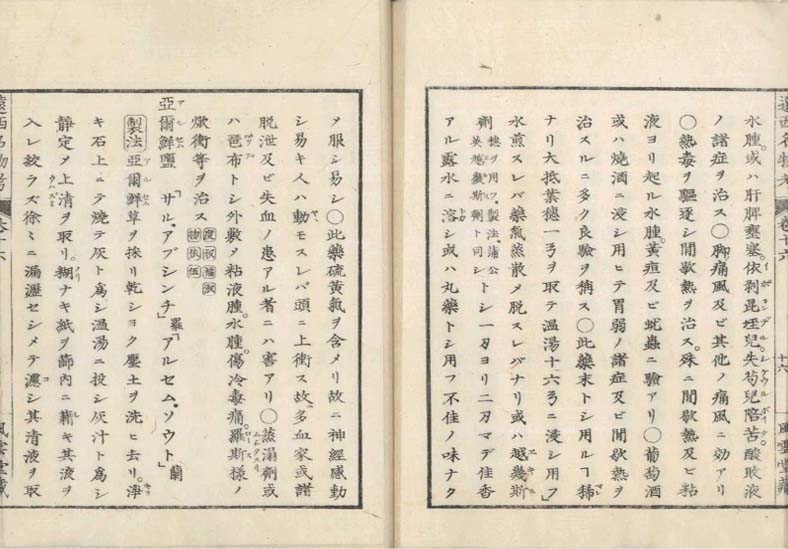 遠西名物考 巻十六 十六 風雲堂蔵
水腫。或ハ肝脾壅塞。依剥昆垤児。失苟児陪苦。酸敗液
ノ諸症ヲ治ス○脚痛風及ビ其他ノ痛風ニ効アリ
○熱毒ヲ驅逐シ間歇熱ヲ治ス。殊ニ間歇熱及ビ粘
液ヨリ起ル水腫。黄疸及ビ蚘蟲ニ驗アリ○葡萄酒
或ハ焼酒ニ浸シ用ヒテ胃弱ノ諸症及ビ間歇熱ヲ
治スルニ多ク良驗ヲ稱ス○此藥末トシ用ルヿ稀
ナリ大抵葉穂一弓ヲ取テ温湯十六弓ニ浸シ用フ
水煎スレバ藥氣蒸散メ脱スレバナリ或ハ越幾斯
劑穂ヲ用フ。製法。蒲公英越幾斯劑ト同シトシ一刀ヨリ二刀マデ佳香
アル露水ニ溶シ或ハ丸藥トシ用フ不佳ノ味ナク
メ服シ易シ○此藥硫黄氣ヲ含メリ故ニ神經感動
シ易キ人ハ動モスレバ頭ニ上衝ス故ニ多血家或諸
脱泄及ビ失血ノ患アル者ニハ害アリ○蒸溻劑或
ハ琶布トシ外敷メ粘液腫。水腫。傷冷毒痛。羅斯様ノ
焮衝等ヲ治ス
亞爾鮮鹽「サル、アブシンチ」羅「アルセム、ソウト」蘭
製法亞爾鮮草ヲ採リ乾シヨク塵土ヲ洗ヒ去リ。淨
キ石上ニテ燒テ灰ト為シ温湯ニ投シ灰汁ト為シ
靜定メ上清ヲ取リ。糊ナキ紙ヲ篩内ニ藉キ其液ヲ
入レ絞ラズ徐々ニ漏瀝セシメテ濾シ其清液ヲ取
遠西名物考 巻十六 風雲堂蔵